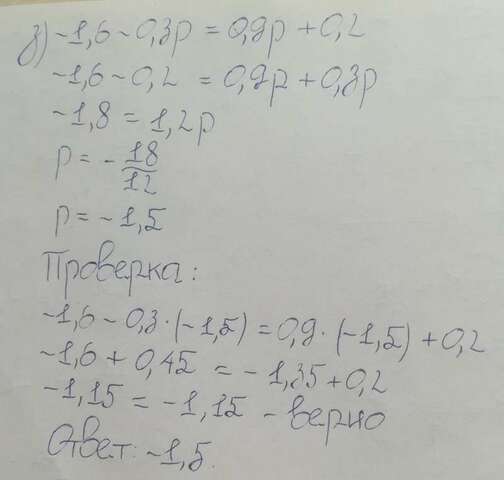 з) -1,6 - 0,3р = 0,9р + 0,2
-1,6 - 0,2 = 0,9р + 0,3р
-1,8 = 1,2р
р = - 18/12
р = - 1,5
Проверка:
-1,6 - 0,3 · (-1,5) = 0,9 · (-1,5) + 0,2
-1,6 + 0,45 = - 1,35 + 0,2
-1,15 = -1,15 - верно
Ответ: -1,5.